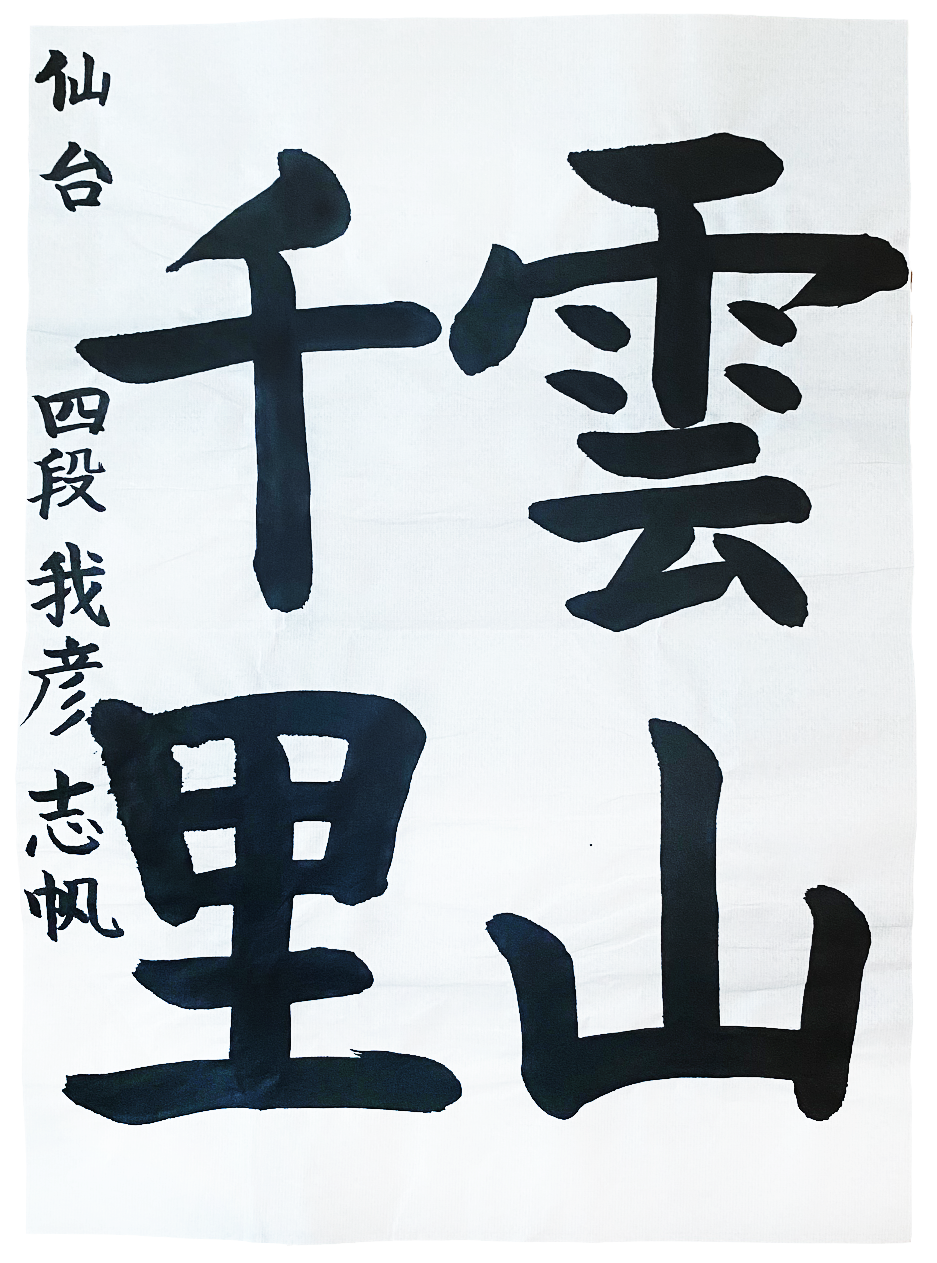 雲山
千里
仙台 四段 我彦 志帆